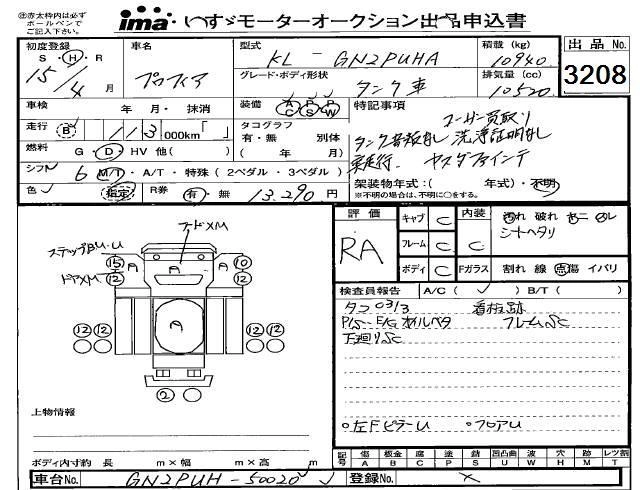 ㊟赤太枠内は必ず
ボールペンで
ご記入下さい。
ima いすゞモーターオークション出品申込書
初度登録 車名 型式 積載 (kg) 出品No.
S・H・R KL - GN2PUHA 10940
15/4 月 プロフィア グレード・ボディ形状 タンク車 排気量 (cc) 10520 3208
車検 年 月・抹消 装備 A/C P/S P/W 特記事項
走行 B 113 000km「 」 タコグラフ 有・無 別体 ユーザー買取り
タンク容量なし 洗浄証明なし
燃料 G・D・HV 他( ) ( 年 月)
実走行. ヤスダファインテ
シフト 6 M/T・A/T・特殊 ( 2ペダル・3ペダル ) 架装物年式:( 年式)・不明
※不明の場合は、不明に○をする。
色 指定 R券 有・無 13.290 円
評価 キャブ C 内装 汚れ 破れ ヤニ スレ
RA フレーム C C シートヘタリ
ボディ C Fガラス 割れ 線 点傷 イバリ
フードXM
ステップBU.U
ドアXM
15 A A 10
12 12
12 12 A 12 12
2
検査員報告 A/C ( ✓ ) B/T ( )
タコ03/3 看板跡
P/S-E/Gオイルベタ フレームSC
下廻りSC
○左FピラーU ○フロアU
上物情報
ボディ内寸約 長 m×幅 m×高 m
記号 傷A 板金B 応C 塗P 錆S 凹凸曲U 波W 穴H 目M レツ割T
車台No. GN2PUH-50020 登録No. ×